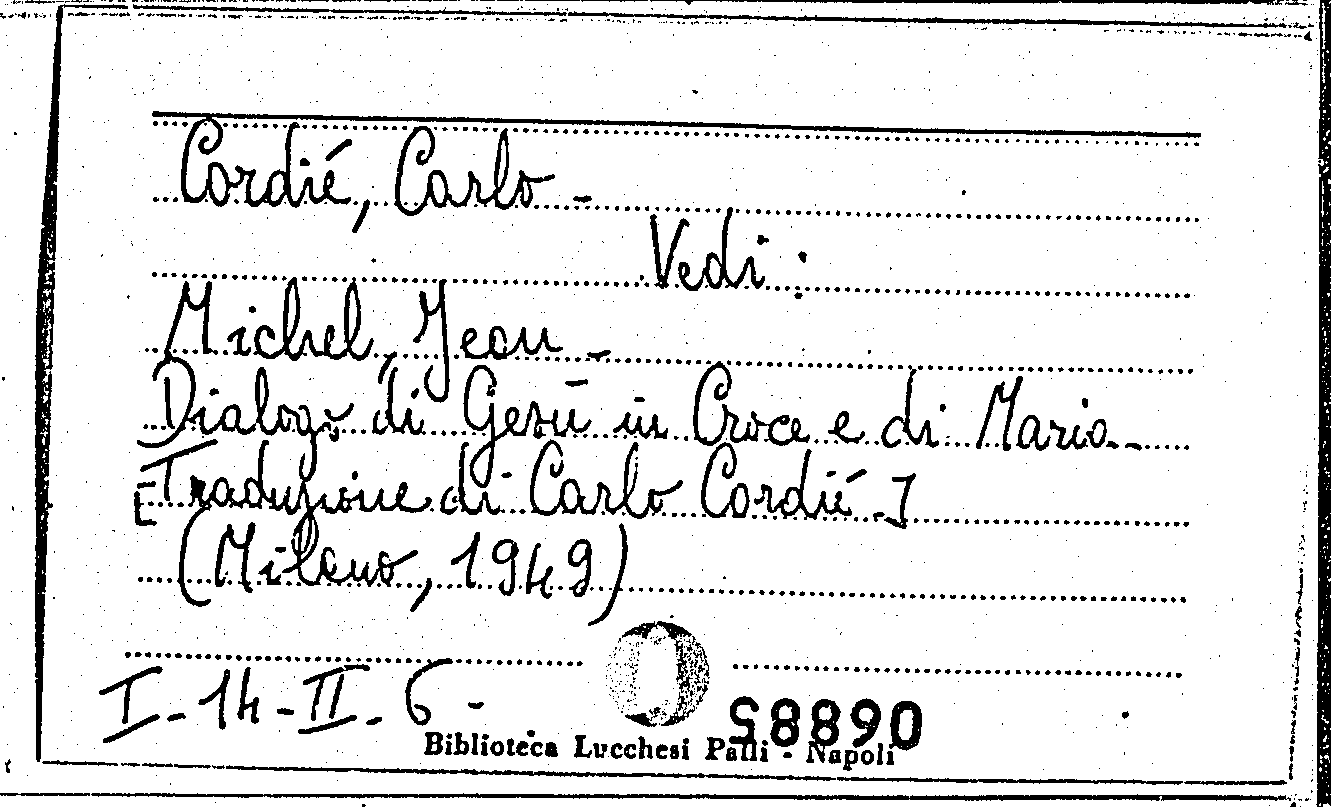 Cordié, Carlo -
Vedi :
Michel, Jean -
Dialogo di Gesù in Croce e di Maria -
[Traduzione di Carlo Cordié -]
(Milano, 1949)
I - 14 - II - 6 -
58890
Biblioteca Lucchesi Palli - Napoli